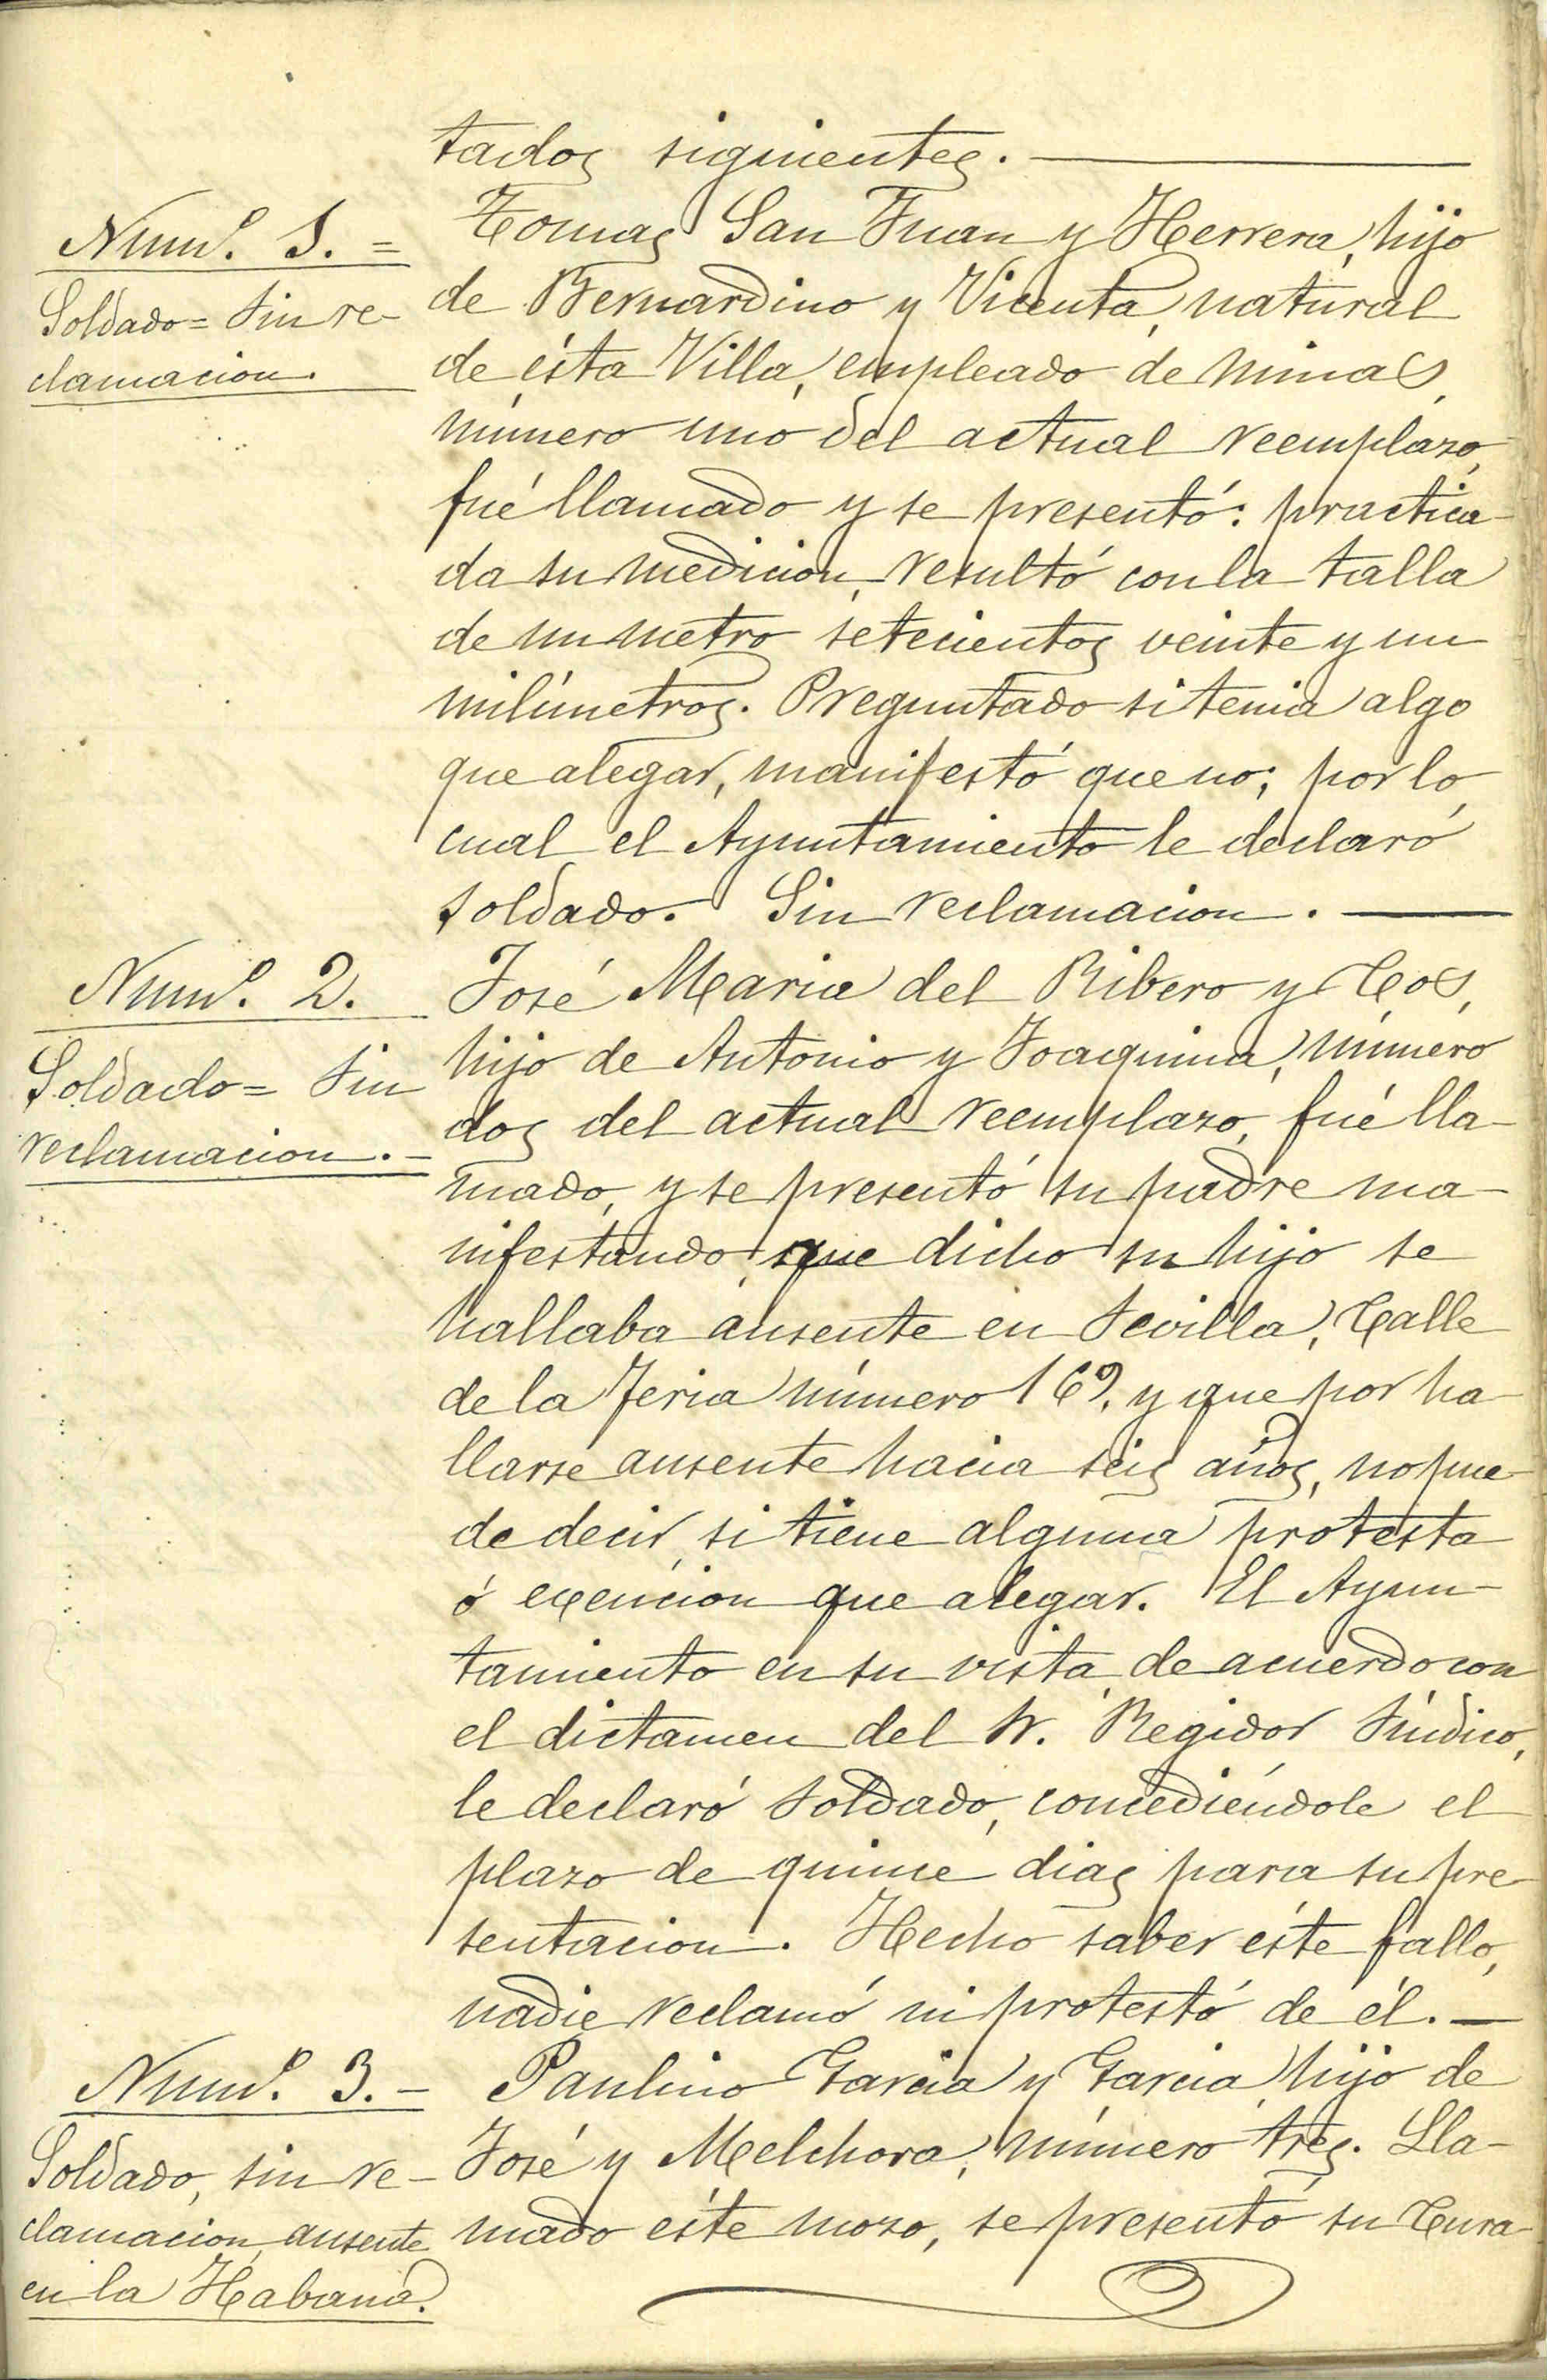 tados siguientes.
Numº. 1. =
Soldado = Sin re-
clamacion.
Tomas San Juan y Herrera, hijo
de Bernardino y Vicenta, natural
de ésta Villa, empleado de minas,
número uno del actual reemplazo,
fué llamado y se presentó: practica-
da su medicion, resultó con la talla
de un metro setecientos veinte y un
milímetros. Preguntado si tenia algo
que alegar, manifestó que no; por lo
cual el Ayuntamiento le declaró
soldado. Sin reclamacion.
Numº. 2.
Soldado = Sin
reclamacion. -
José Maria del Ribero y Cos,
hijo de Antonio y Joaquina, número
dos del actual reemplazo, fué lla-
mado, y se presentó su padre ma-
nifestando, que dicho su hijo se
hallaba ausente en Sevilla, Calle
de la Feria número 169, y que por ha-
llarse ausente hacia seis años, no pue-
de decir, si tiene alguna protesta
ó exencion que alegar. El Ayun-
tamiento en su vista, de acuerdo con
el dictamen del Sr. Regidor Síndico,
le declaró soldado, concediéndole el
plazo de quince dias para su pre-
sentacion. Hecho saber éste fallo,
nadie reclamó ni protestó de él. -
Numº. 3. -
Soldado, sin re-
clamacion, ausente
en la Habana.
Paulino Garcia y Garcia, hijo de
José y Melchora, número tres. Lla-
mado éste mozo, se presentó su Cura-